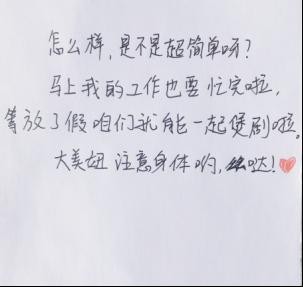 怎么样,是不是超简单呀?
马上我的工作也要忙完啦,
等放了假咱们就能一起煲剧啦。
大美妞注意身体哟,么哒!